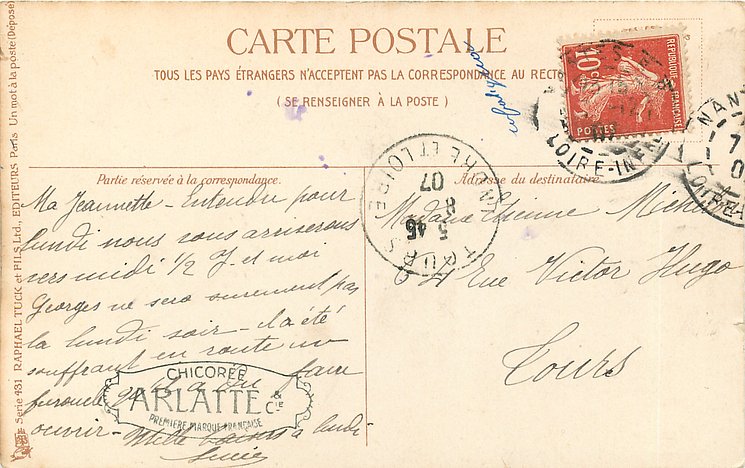 CARTE POSTALE
TOUS LES PAYS ÉTRANGERS N'ACCEPTENT PAS LA CORRESPONDANCE AU RECTO
(SE RENSEIGNER À LA POSTE)
RÉPUBLIQUE FRANÇAISE
10c
POSTES
LOIRE-IN
NAN
LOIRE-
INDRE ET LOIRE
TOURS
5 45
8
07
Partie réservée à la correspondance.
Adresse du destinataire.
Ma Jeannette - Entendu pour
lundi nous vous arriverons
vers midi 1/2 J. et moi
Georges ne sera surement pas
la lundi soir - il a été
souffrant en route un
furoncle qu'il a dû faire
ouvrir - Mille baisers à lundi
Lucie
Madame Etienne
Rue Victor Hugo
Tours
CHICORÉE
ARLATTE & Cie
PREMIÈRE MARQUE FRANÇAISE
Série 431 RAPHAEL TUCK et FILS Ltd., EDITEURS, Paris. Un mot à la poste (Déposé)